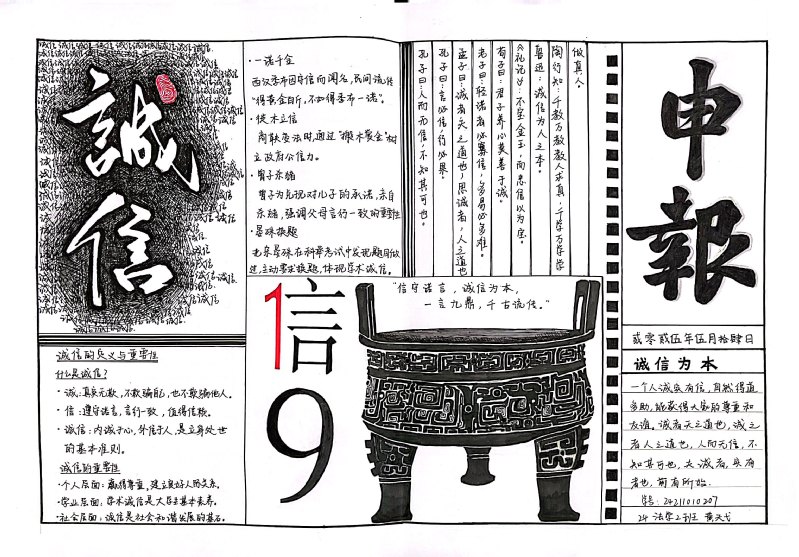 誠信
诚信的意义与重要性
什么是诚信？
·诚：真实无欺，不欺骗自己，也不欺骗他人。
·信：遵守诺言，言行一致，值得信赖。
·诚信：内诚于心，外信于人，是立身处世
的基本准则。
诚信的重要性
·个人层面：赢得尊重，建立良好人际关系。
·学业层面：学术诚信是大学生基本素养。
·社会层面：诚信是社会和谐发展的基石。
·一诺千金
西汉季布因守信而闻名，民间流传
“得黄金百斤，不如得季布一诺”。
·徙木立信
商鞅变法时，通过“搬木赏金”树
立政府公信力。
·曾子杀猪
曾子为兑现对儿子的承诺，亲自
杀猪，强调父母言行一致的重要性
·晏殊换题
北宋晏殊在科举考试中发现题目做
过，主动要求换题，体现学术诚信。
做真人
陶行知：千教万教教人求真，千学万学学
鲁迅：诚信为人之本。
《礼记》：不宝金玉，而忠信以为宝。
荀子曰：君子养心莫善于诚。
老子曰：轻诺者必寡信，多易必多难。
孟子曰：诚者天之道也，思诚者，人之道也
孔子曰：言必信，行必果。
孔子曰：人而无信，不知其可也。
1信9
“信守诺言，诚信为本，
一言九鼎，千古流传。”
申報
贰零贰伍年伍月拾肆日
诚信为本
一个人诚实有信，自然得道
多助，能获得大家的尊重和
友谊。诚者天之道也，诚之
者人之道也，人而无信，不
知其可也，夫诚者，
学号：24211010207
24 法学2班